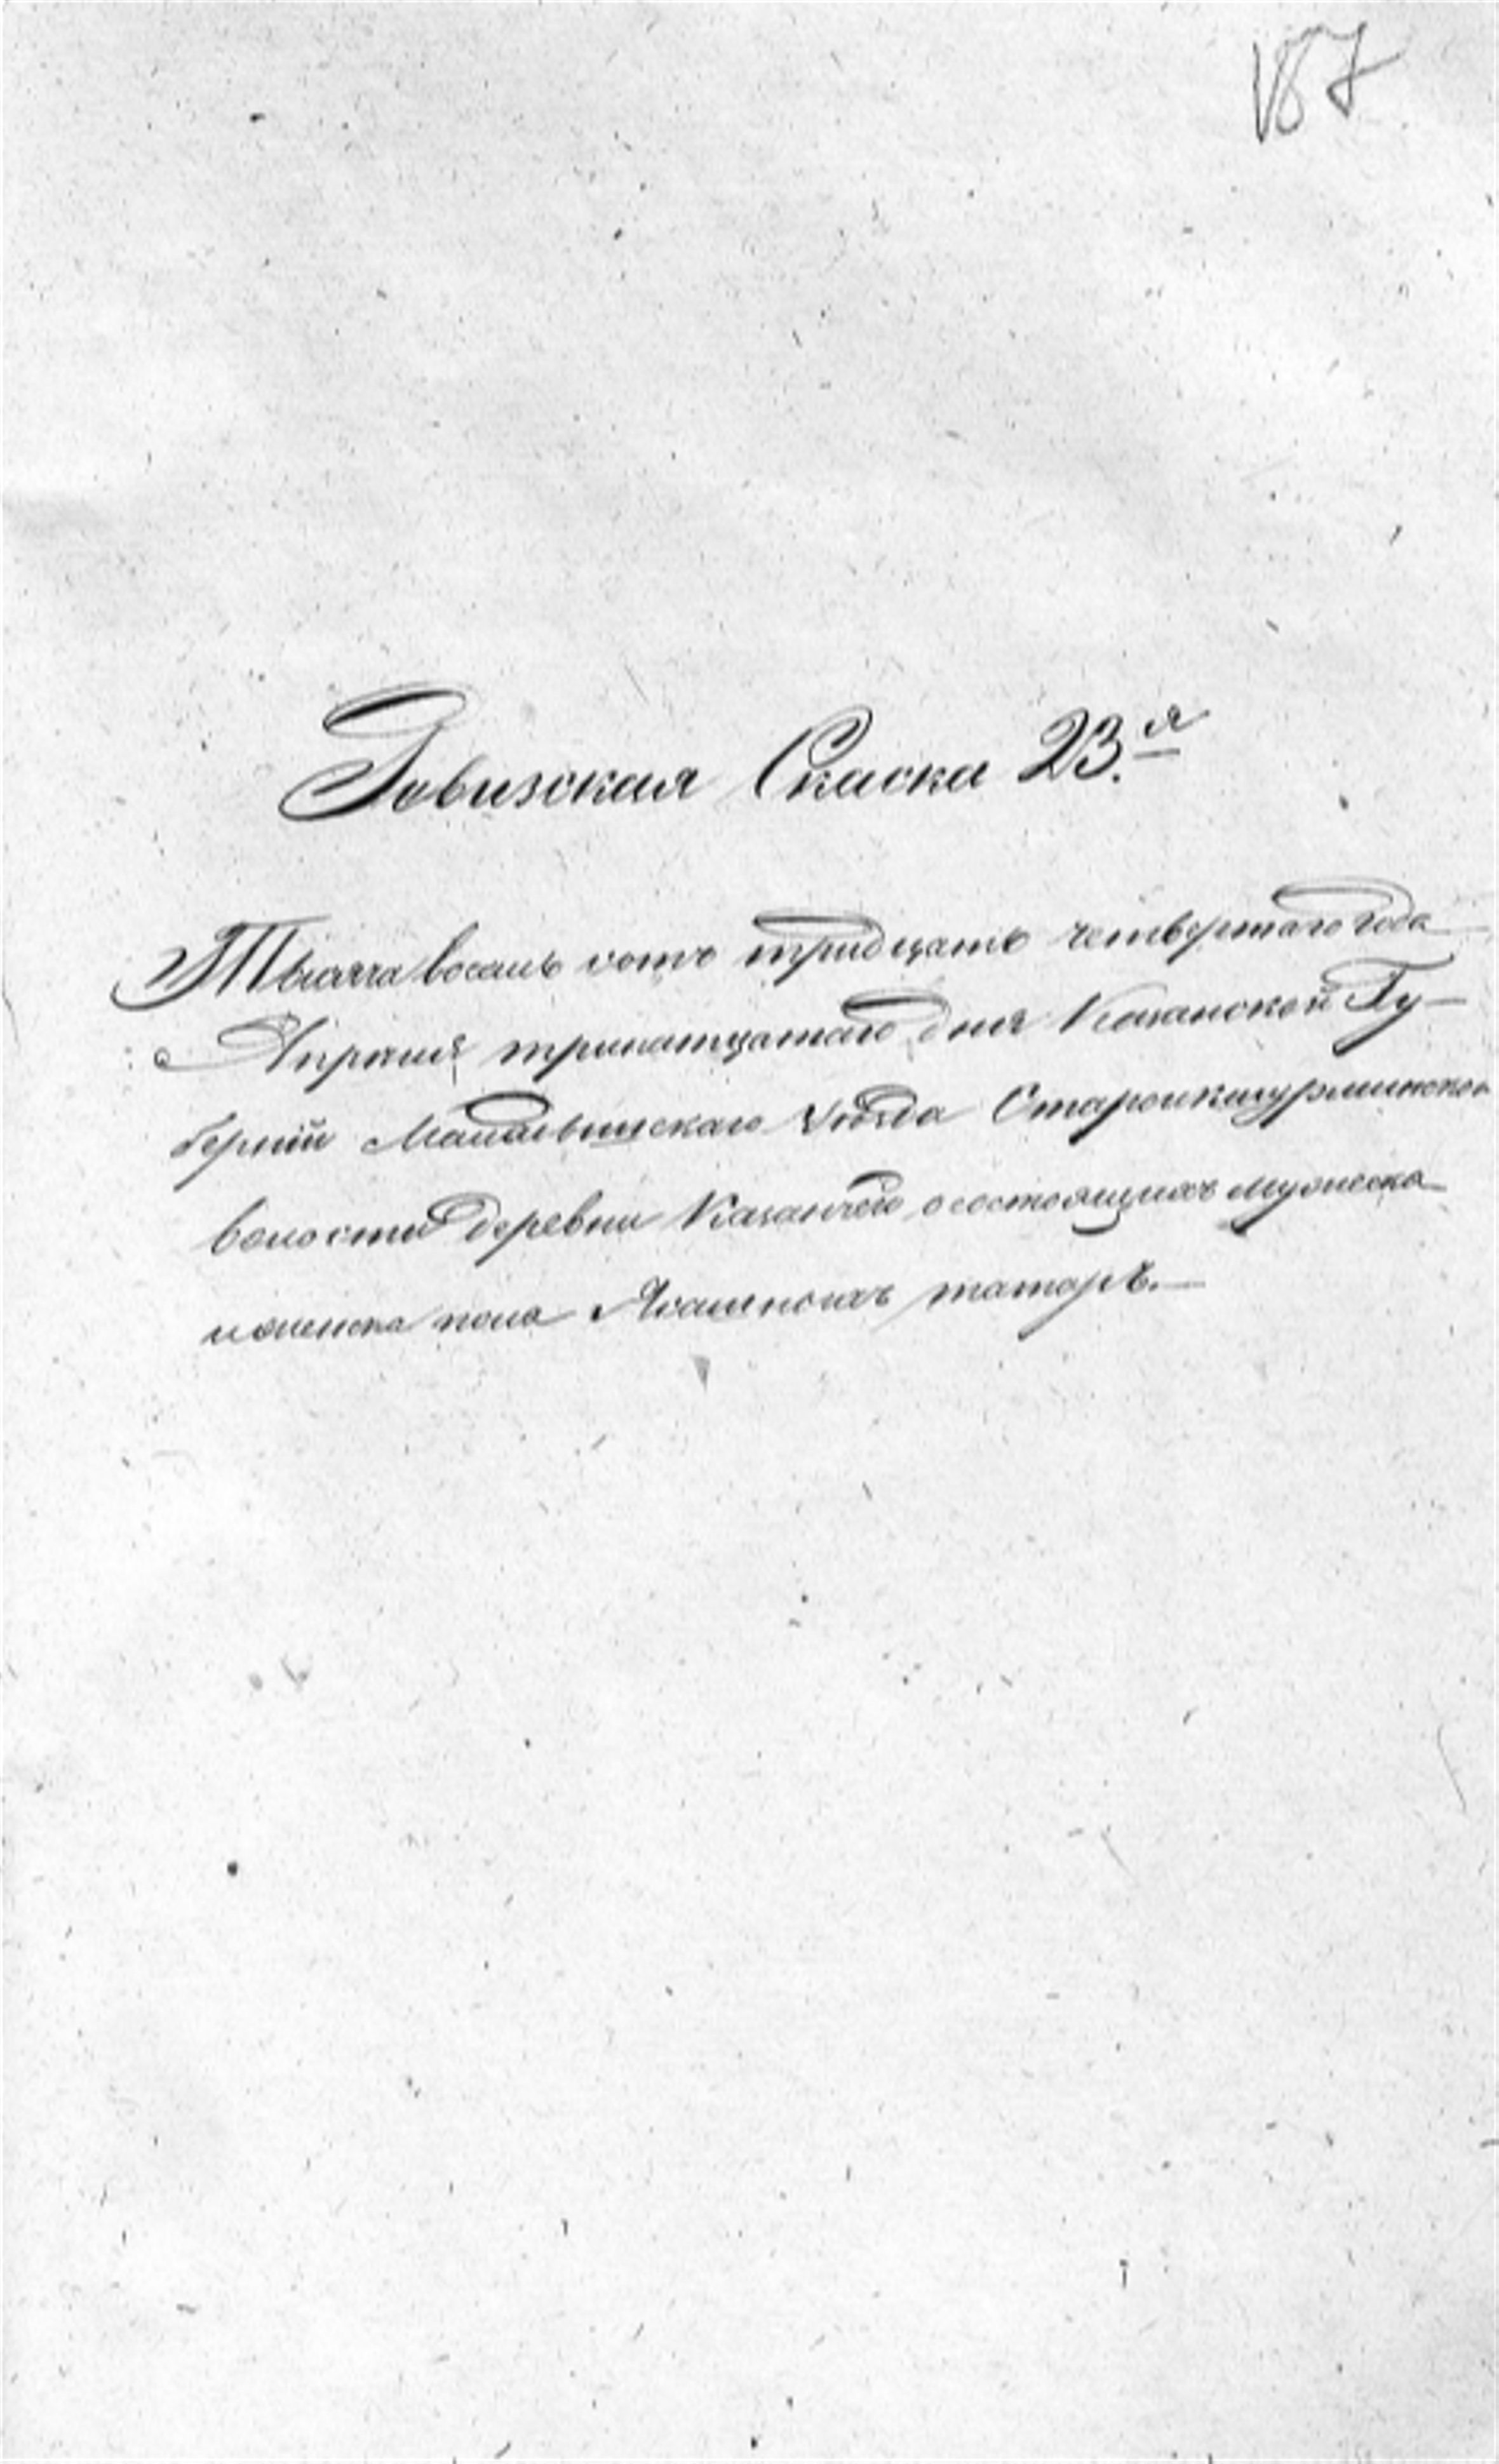 187
Ревизская Скаска 23.я
Тысяча восемь сотъ тридцать четвертаго года
Апреля тринатцатаго дня Казанской Гу-
берніи Мамадышскаго Уѣзда Староикшурминской
волости деревни Казанчей о состоящихъ мужеска
и женска пола Ясашныхъ татаръ.